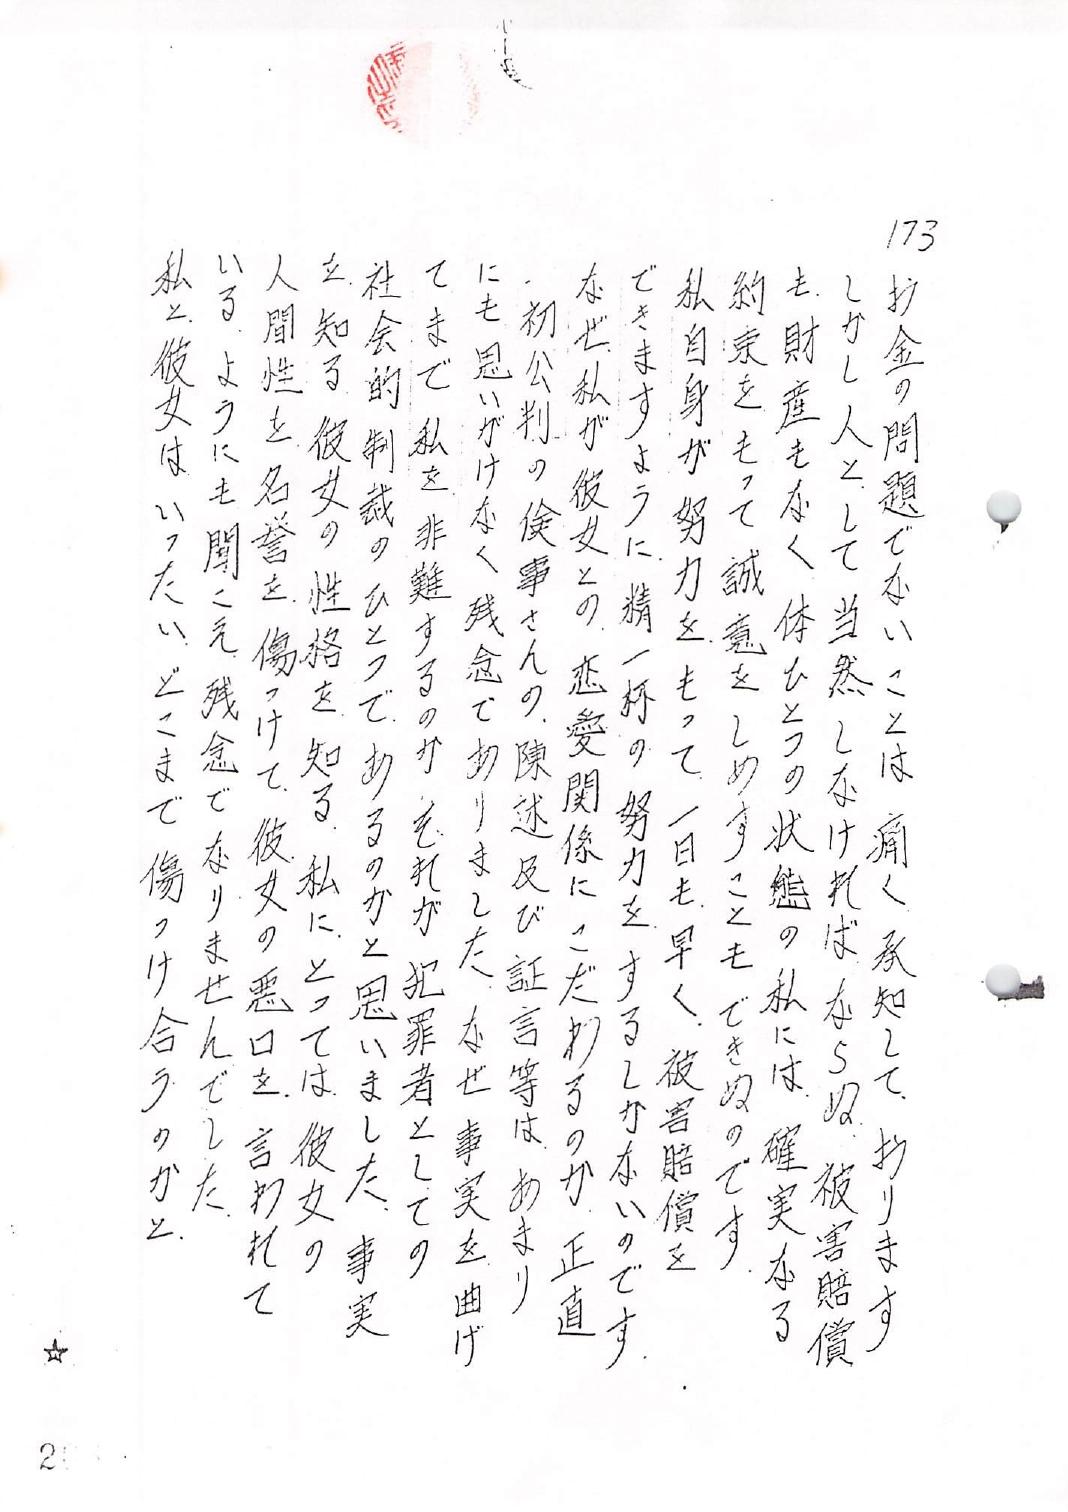 173
お金の問題でないことは痛く、承知して、おります
しかし人として当然しなければならぬ、被害賠償
も、財産もなく体ひとつの状態の私には、確実なる
約束をもって誠意をしめすことも できぬのです。
私自身が努力をもって、一日も、早く、被害賠償を
できますように、精一杯の努力をするしかないのです。
なぜ、私が彼女との、恋愛関係にこだわるのか、正直
、初公判の倹事さんの、陳述及び証言等は、あまり
にも思いがけなく残念でありました なぜ事実を曲げ
てまで私を、非難するのか、それが犯罪者としての
社会的制裁のひとつで、あるのかと思いました、事実
を、知る彼女の性格を、知る、私に、とっては、彼女の
人間性を名誉を、傷つけて、彼女の悪口を、言われて
いる、ようにも聞こえ、残念でなりませんでした、
私と、彼女は、いったい、どこまで傷つけ合うのかと、
☆
2